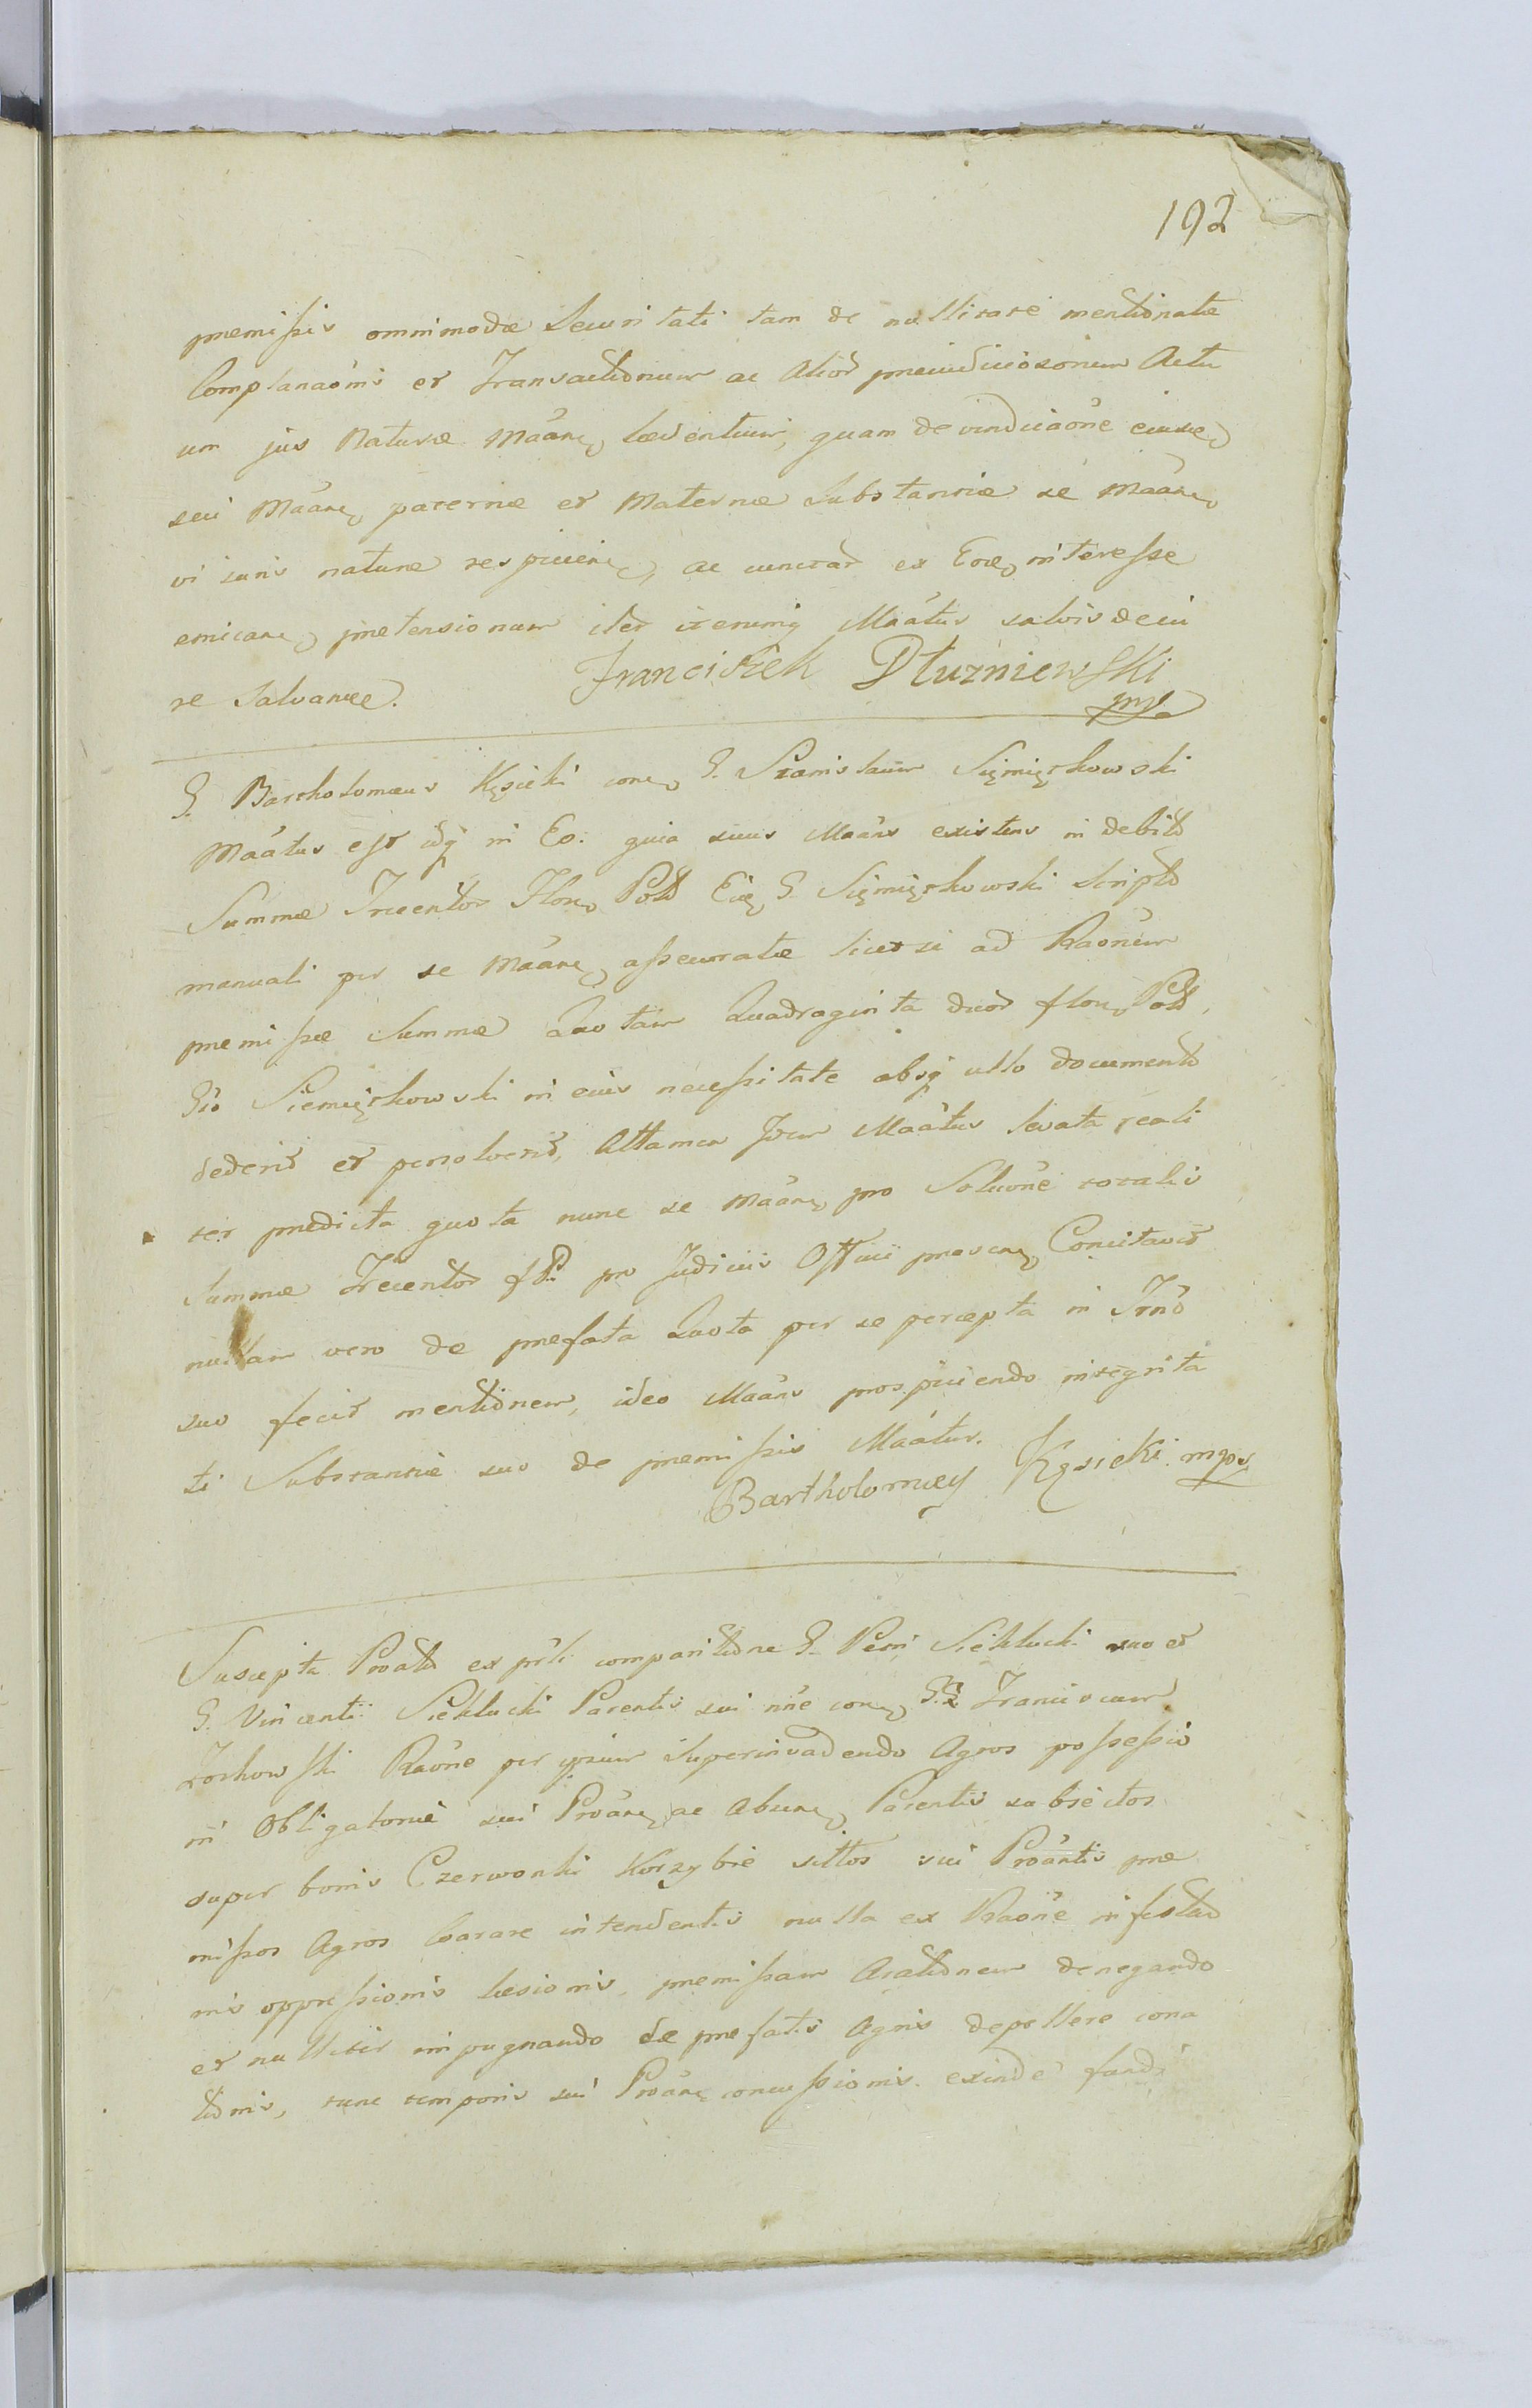 192
premissis omnimodæ Securitati tam de nullitate mentionatæ
Complanaõnis et Transactionum ac Alior preiudiciosorum Actu
um jus Naturæ Mãan, lædentium, quam de vindicaõne eiusd,
sui Mãan, paternæ et Maternæ Substantiæ se Mãan,
vi juris naturæ respicien, ac cunctar ex Eoq, interesse
emican, prætensionum iter iterumq Mãatur salvis de iu
re Salvandis.
Franciszek Dłuzniewski
mp
G. Bartholomæus Kęsicki con, G. Stanislaum Sięmiątkowski
Mãatus est idq in Eo. quia suus Mãans existens in debito
Summæ Trecentor Flor, Pold Eid, G. Siemiątkowski Scripto
manuali per se Mãan, assecuratæ licet si ad Raõnem
premissæ Summæ Quotam Quadraginta duor flor, Pold,
Gso Siemiątkowski in eius necessitate absq ullo documento
dederit et persolverit, Attamen Idem Mãatus levata reali
ter predicta quota nunc se Mãan, pro Soluõne totalis
Summæ Trecentor fP. pro Judiciis Officii presen, Concitavit
nullam vero de prefata Quota per se percepta in Trõ
suo fecit mentionem, ideo Mãans prospiciendo integrita
ti Substantiæ suæ de premissis Mãatur.
Bartholomey Kęsicki mps
Suscepta Proatio ex prsli comparitione G. Petri Siekłucki suo et
G. Vincentii Siekłucki Parentis sui nne con, G. Franciscum
Żochowski Raõne per ipsum Superinvadendo Agros possessio
ni Obligatoriæ sui Proãn, ac Absen, Parentis subiectos
super bonis Czerwonki Korzybie sittos sui Proãntis præ
missos Agros Coarare intendentis nulla ex Raõne infestatio
nis oppressionis læsionis, premissam Arationem denegando
et nulliter impugnando de prefatis Agris depellere cona
tionis, tunc temporis sui Proãn, concussionis. exinde